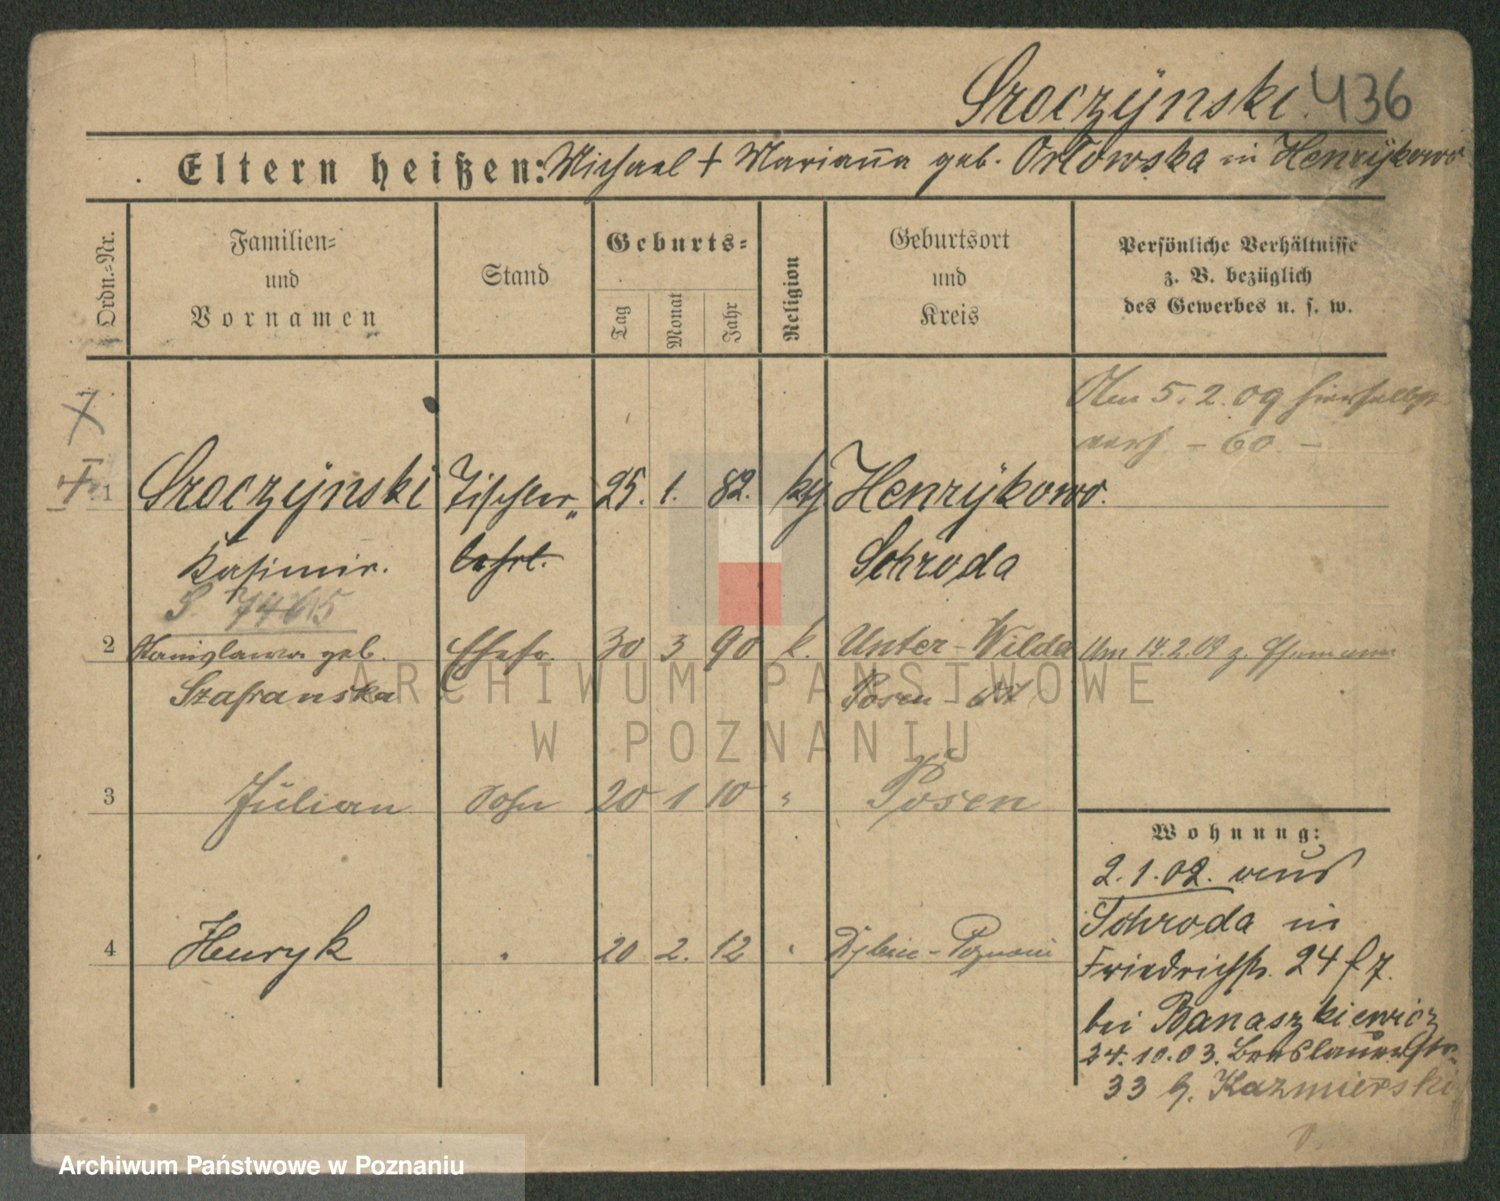 Sroczÿnski. 436
Eltern heißen: Michael + Mariaña geb. Orłowska in Henrÿkowo
Ordn.-Nr.
Familien-
und
Vornamen
Stand
Geburts-
Tag
Monat
Jahr
Religion
Geburtsort
und
Kreis
Persönliche Verhältnisse
z. B. bezüglich
des Gewerbes u. s. w.
Am 5.2.09 hierselbst
verh. - 60. -
1 Sroczÿnski Tischler 25. 1. 82. k Henrÿkowo.
Kasimir. lehrl. Schroda
S. 7465
2 Stanislawa geb. Ehefr. 30 3 90 k. Unter-Wilda Am 14.2.09 z. Ehemann
Szafranska Posen
3 Julian Sohn 20 1 10 " Posen
4 Henryk " 20 2. 12 "
Wohnung:
2.1.02. aus
Schroda in
Friedrichstr. 24
bei Banaszkiewicz
24.10.03. Breslauerstr.
33 b. Kazmierski
ARCHIWUM PAŃSTWOWE
W POZNANIU
Archiwum Państwowe w Poznaniu